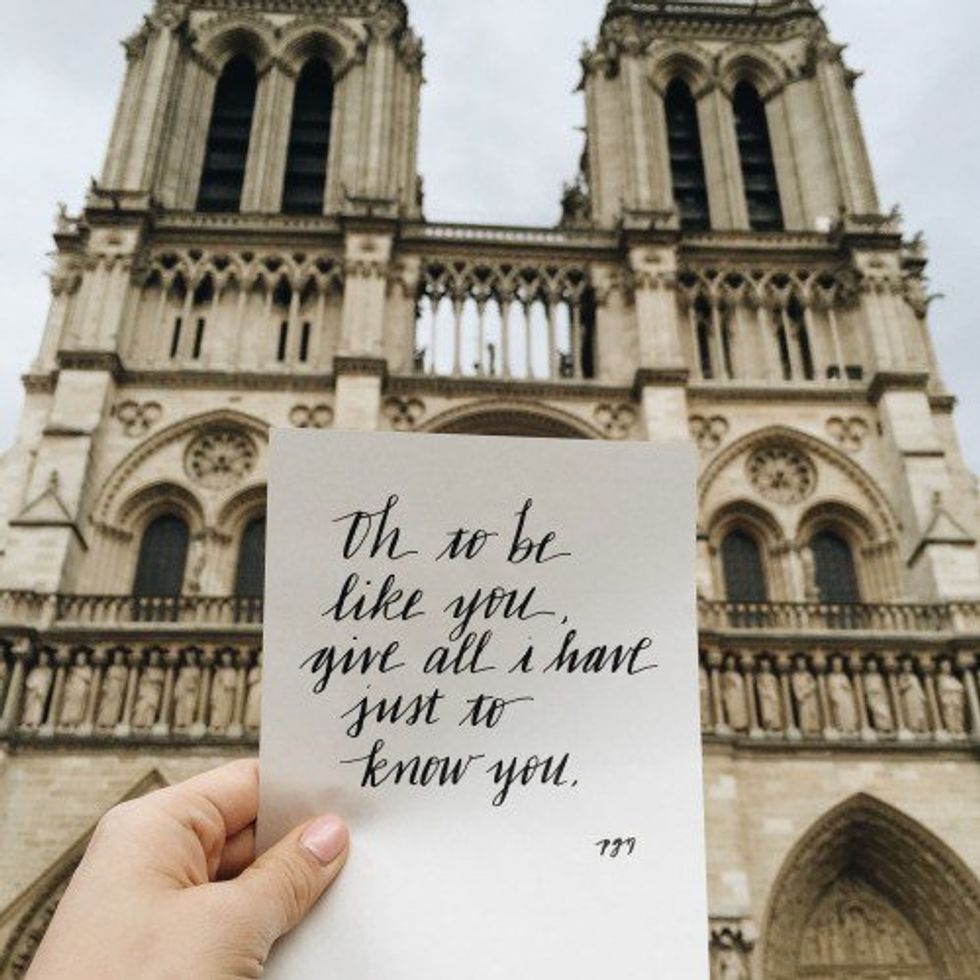 Oh to be
like you,
give all i have
just to
know you.